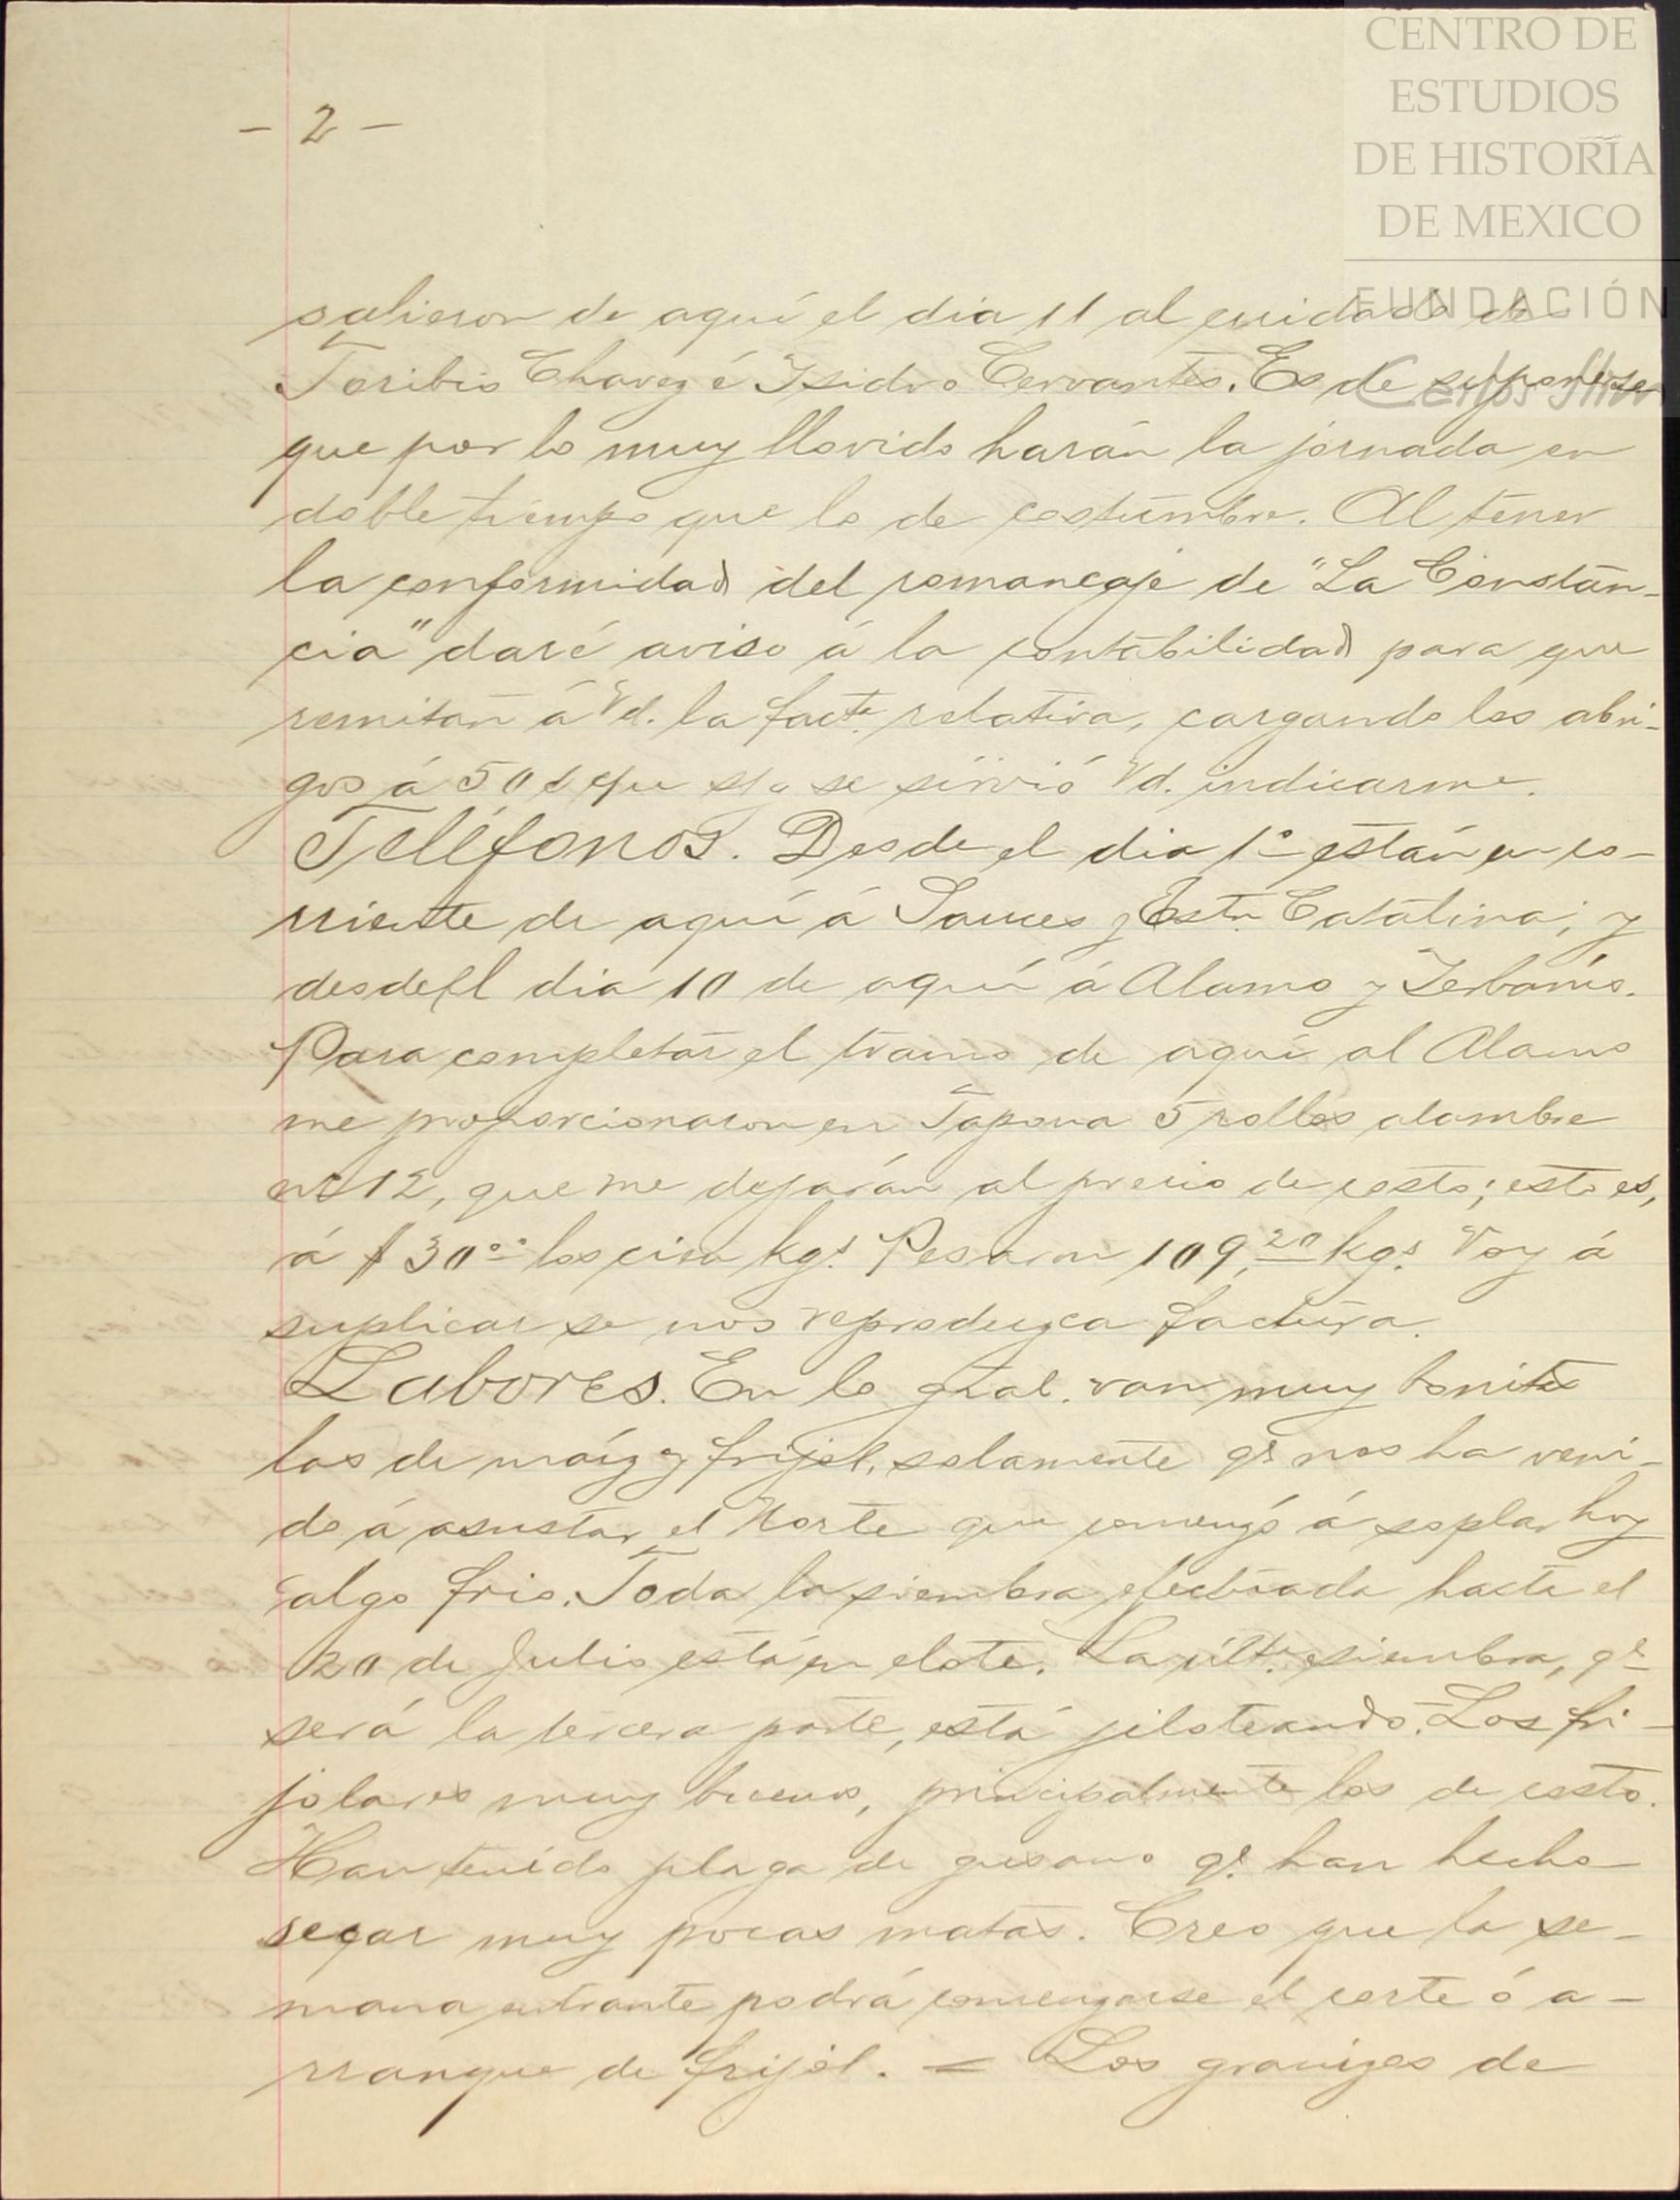 CENTRO DE
ESTUDIOS
DE HISTORIA
DE MEXICO
FUNDACIÓN
Carlos Slim
- 2 -
salieron de aquí el dia 11 al cuidado de
Toribio Chavez é Ysidro Cervantes. Es de suponerse
que por lo muy llovido harán la jornada en
doble tiempo que lo de costumbre. Al tener
la conformidad del romaneaje de "La Constan-
cia" daré aviso á la contabilidad para que
remitan á Vd. la fact.ª relativa, cargando los abri-
gos á 50 que se sirvió Vd. indicarme.
Teléfonos. Desde el dia 1º están en co-
rriente de aquí á Sauces y Sta. Catalina; y
desde el dia 10 de aquí á Alamo y Yerbanís.
Para completar el tramo de aquí al Alamo
me proporcionaron en Tapona 5 rollos alambre
nº 12, que me dejarán al precio de costo; esto es,
á $30.°° los cien kgs. Pesaron 109,20 kgs. Voy á
suplicar se nos reproduzca factura.
Labores. En lo gral. van muy bonitas
las de maíz y frijol, solamente qe. nos ha veni-
do á asustar el Norte que comenzó á soplar hoy
algo frio. Toda la siembra efectuada hasta el
20 de Julio está en elote. La últ.ª siembra, qe.
será la tercera parte, está jiloteando. Los fri-
jolares muy buenos, principalmente los de costo.
Han tenido plaga de gusano qe. han hecho
secar muy pocas matas. Creo que la se-
mana entrante podrá comenzarse el corte ó a-
rranque de frijol. = Los granizos de